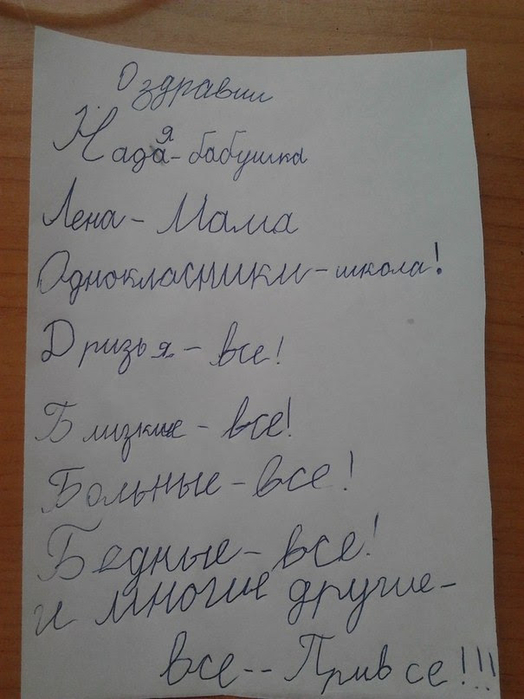 Оздравии
Надя - бабушка
Лена - Мама
Однокласники - школа!
Дризья - все!
Близкие - все!
Больные - все!
Бедные - все!
и многие другие -
все -- Прив се!!!